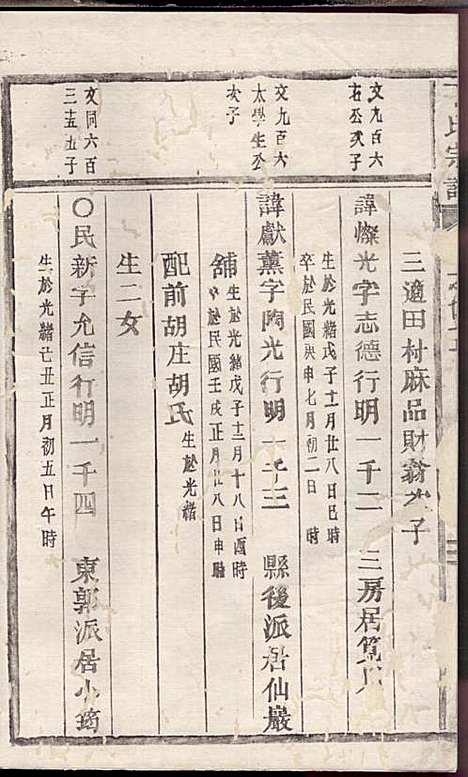 氏宗譜
三適田村麻品財翁次子
文九百六
右公次子
諱燦光字志德行明一千二 三房居筧
生於光緒戊子十二月廿八日巳時
卒於民國庚申七月初二日 時
文九百六
太學生公
次子
諱獻薰字陶光行明一千三 縣後派居仙巖
舖
生於光緒戊子十二月十八日酉時
卒於民國壬戌正月廿八日申時
配前胡庄胡氏
生於光緒
生二女
文同六百
三十五子
○民新字允信行明一千四 東郭派居小筠
生於光緒己丑正月初五日午時